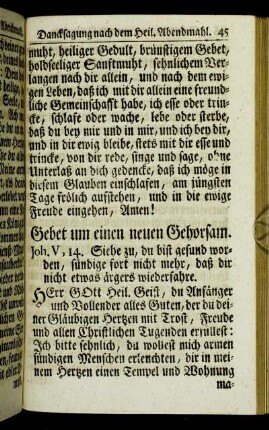 Dancksagung nach dem Heil. Abendmahl. 45
muht, heiliger Gedult, brünstigem Gebet,
holdseeliger Sanftmuht, sehnlichem Ver-
langen nach dir allein, und nach dem ewi-
gen Leben, daß ich mit dir allein eine freund-
liche Gemeinschafft habe, ich esse oder trin-
cke, schlafe oder wache, lebe oder sterbe,
daß du bey mir und in mir, und ich bey dir,
und in dir ewig bleibe, stets mit dir esse und
trincke, von dir rede, singe und sage, ohne
Unterlaß an dich gedencke, daß ich möge in
diesem Glauben einschlafen, am jüngsten
Tage frölich aufstehen, und in die ewige
Freude eingehen, Amen!
Gebet um einen neuen Gehorsam.
Joh. V, 14. Siehe zu, du bist gesund wor-
den, sündige fort nicht mehr, daß dir
nicht etwas ärgers wiederfahre.
HErr GOtt Heil. Geist, du Anfänger
und Vollender alles Guten, der du dei-
ner Gläubigen Hertzen mit Trost, Freude
und allen Christlichen Tugenden erfüllest:
Ich bitte sehnlich, du wollest mich armen
sündigen Menschen erleuchten, dir in mei-
nem Hertzen einen Tempel und Wohnung
ma-